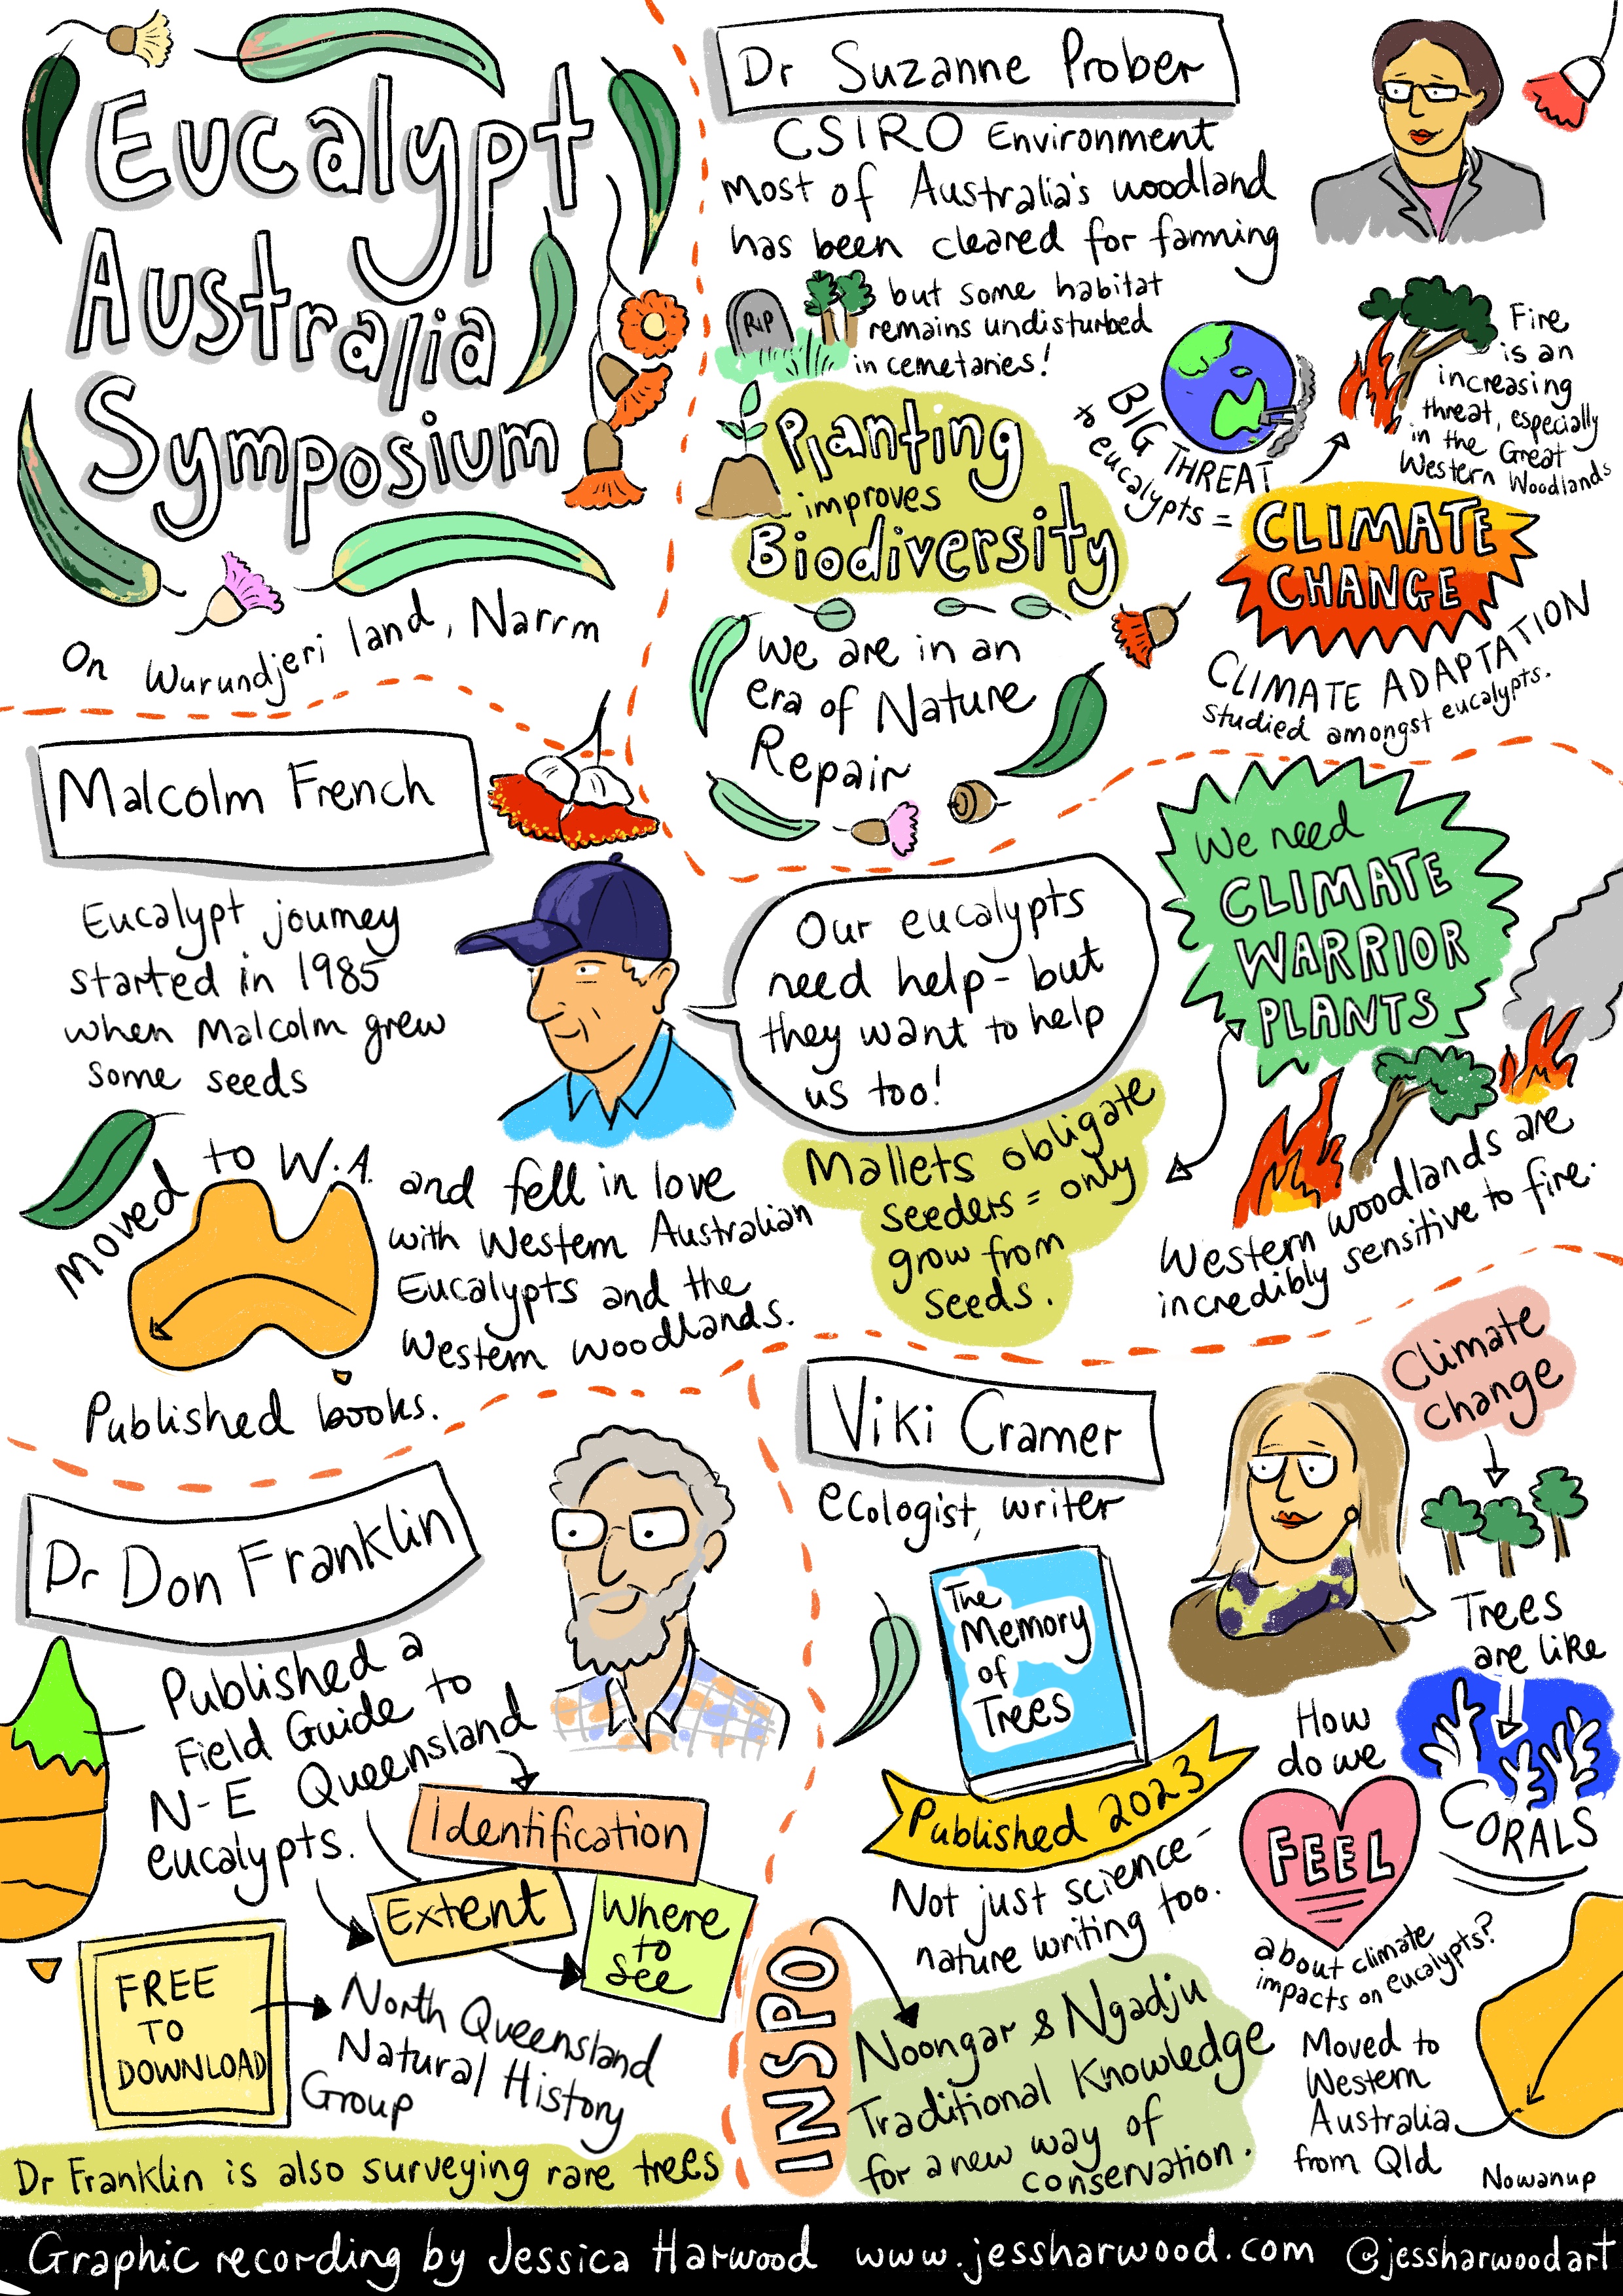 Eucalypt
Australia
Symposium
On Wurundjeri land, Narrm
Dr Suzanne Prober
CSIRO Environment
Most of Australia's woodland
has been cleared for farming
RIP
but some habitat
remains undisturbed
in cemetaries!
Planting
improves
Biodiversity
We are in an
era of Nature
Repair
BIG THREAT
to eucalypts =
CLIMATE
CHANGE
Fire
is an
increasing
threat, especially
in the Great
Western Woodlands
CLIMATE ADAPTATION
studied amongst eucalypts.
Malcolm French
Eucalypt journey
started in 1985
when Malcolm grew
some seeds
Moved to W.A. and fell in love
with Western Australian
Eucalypts and the
Western Woodlands.
Published books.
Our eucalypts
need help - but
they want to help
us too!
We need
CLIMATE
WARRIOR
PLANTS
Mallets obligate
seeders = only
grow from
seeds.
Western woodlands are
incredibly sensitive to fire.
Dr Don Franklin
Published a
Field Guide to
N-E Queensland
eucalypts.
Identification
Extent
Where
to
see
FREE
TO
DOWNLOAD
North Queensland
Natural History
Group
Dr Franklin is also surveying rare trees
Viki Cramer
ecologist, writer
The
Memory
of
Trees
Published 2023
Not just science -
nature writing too.
Climate
change
Trees
are like
CORALS
How
do we
FEEL
about climate
impacts on eucalypts?
INSPO
Noongar & Ngadju
Traditional Knowledge
for a new way of
conservation.
Moved to
Western
Australia
from Qld
Nowanup
Graphic recording by Jessica Harwood www.jessharwood.com @jessharwoodart